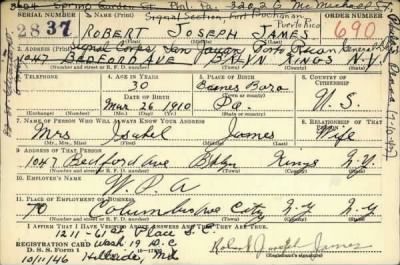 3604 Spring Garden St. Phil. Pa. 3202 G McMichael St.
Signal Section, Fort Buchanan, Puerto Rico
SERIAL NUMBER
1. NAME
ORDER NUMBER
2837
ROBERT JOSEPH JAMES
690
Signal Corps San Juan, Porto Rican General Depot
1047 BEDFORD AVE BKLYN KINGS N.Y.
(Number and street or R. F. D. number) (Town) (County) (State)
4. AGE IN YEARS
5. PLACE OF BIRTH
6. COUNTRY OF CITIZENSHIP
30
Boro
DATE OF BIRTH
(Town or county)
Mar. 26 1910
Pa.
U. S.
(Mo.) (Day) (Yr.)
(State or country)
7. NAME OF PERSON WHO WILL ALWAYS KNOW YOUR ADDRESS
8. RELATIONSHIP OF THAT PERSON
Mrs Isabel James
Wife
(Mr., Mrs., Miss) (First) (Middle) (Last)
9. ADDRESS OF THAT PERSON
1047 Bedford Ave Bklyn Kings N.Y.
(Number and street or R. F. D. number) (Town) (County) (State)
10. EMPLOYER'S NAME
W. P. A
11. PLACE OF EMPLOYMENT OR BUSINESS
70 Columbus Ave City N.Y. N.Y.
(Number and street or R. F. D. number) (Town) (County) (State)
I AFFIRM THAT I HAVE VERIFIED ABOVE ANSWERS AND THAT THEY ARE TRUE.
1211 - 61st Place S.E.
REGISTRATION CARD Wash 19 D C
D. S. S. Form 1
10/11/46 Hillside, Md
Robert Joseph James
(Registrant's signature)